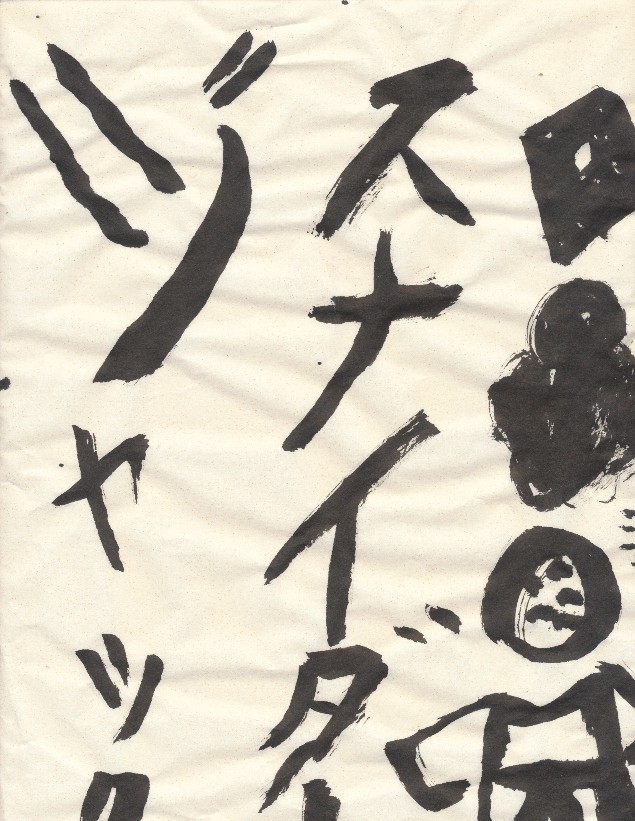 スナイダー
ジャック